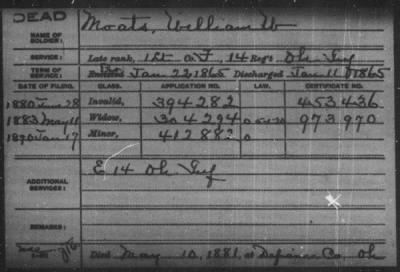 DEAD
NAME OF SOLDIER: Moats, William W
SERVICE: Late rank, 1st Co. F, 14 Reg't Oh. Inf
TERM OF SERVICE: Enrolled Jan 22, 1865 Discharged Jan 11 1865
DATE OF FILING. CLASS. APPLICATION NO. LAW. CERTIFICATE NO.
1880 28 Invalid, 394282 453436
1883 May 11 Widow, 304294 973970
1890 Jan 17 Minor, 412882
ADDITIONAL SERVICES: E 14 Oh Inf
REMARKS:
Died May 10, 1881, at Defiance Co. Oh